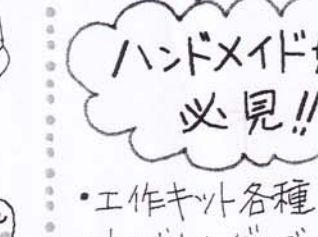 ハンドメイド
必見!!
・工作キット各種